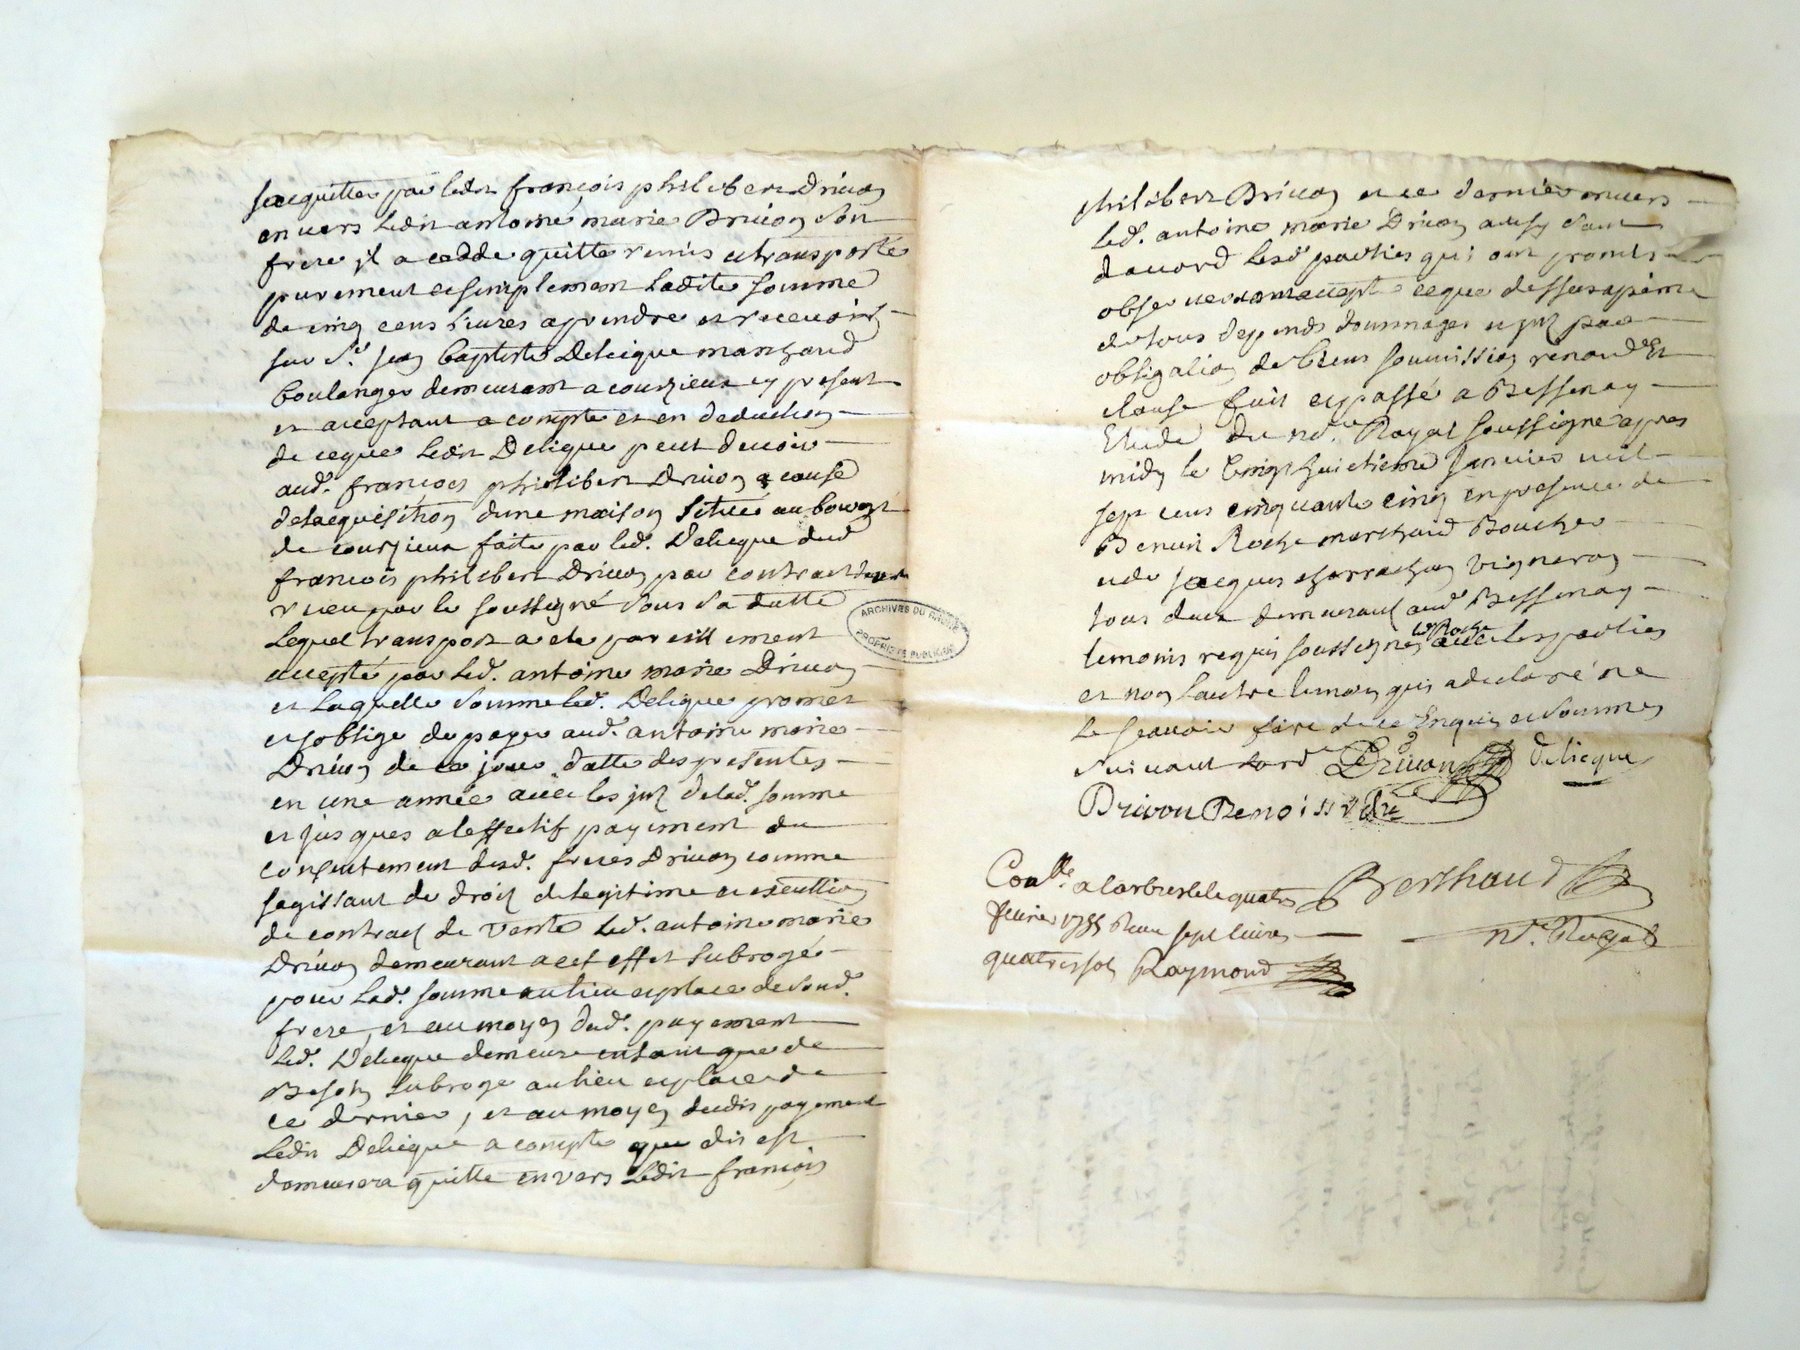 sacquitter par ledit françois philibert Drivon
envers Ledit antoine marie Drivon son
frere il a cedde quitte remis et transporté
purement et simplement Ladite somme
de cinq cens livres a prendre et recevoir
sur Sr. Jean Baptiste Delicque marchand
boulanger demeurant a courzieux cy present
et acceptant a compte et en deduction
de ceque Ledit Delicque peut devoir
aud. françois philibert Drivon a cause
delacquisition dune maison située au bourg
de courzieux faite par led. Delicque dud
françois philibert Drivon par contract
receu par le soussigné sous sa datte
Lequel transport a eté pareillement
accepté par Led. antoine marie Drivon
et Laquelle somme led. Delicque promet
et soblige de payer aud. antoine marie
Drivon de ce jour datte des presentes
en une année avec les jnt. delad. somme
et jusques a leffectif payement du
consentement desd. freres Drivon comme
sagissant de droit de legitime et execution
de contract de vente led. antoine marie
Drivon demeurant a cet effet subrogé
pour Lad. somme au lieu et place de sond.
frere, et au moyen dud. payement
Led. Delicque demeure entant que de
Besoin subrogé au lieu et place de
ce dernier, et au moyen dudit payement
Ledit Delicque a compte que dit est
demeurera quitte envers Ledit françois
philibert Drivon et ce dernier envers
led. antoine marie Drivon ainsy sont
daccord lesd. parties qui ont promis
observer ceque dessus a peine
de tous depends dommages et jnt. par
obligation de biens soumission renond. Et
clause fait et passé a Bessenay
Etude du nore. Royal soussigné apres
midy le vingt huictieme janvier mil
sept cens cinquante cinq en presence de
Benoit Roche marchand Boucher
et de jacques charrachon vigneron
tous deux demeurant aud. Bessenay
temoins requis soussignés led. Roche avec les parties
et non lautre temoin qui a declaré ne
le scavoir faire de ce Enquis et sommé
suivant lord. Drivon Delicque
Drivon Benoist Roche
Conlle. a larbresle le quatre Berthaud
fevrier 1755 Receu sept livres
nre. Royal
quatre sols Raymond
ARCHIVES DU RHÔNE
PROPRIÉTÉ PUBLIQUE